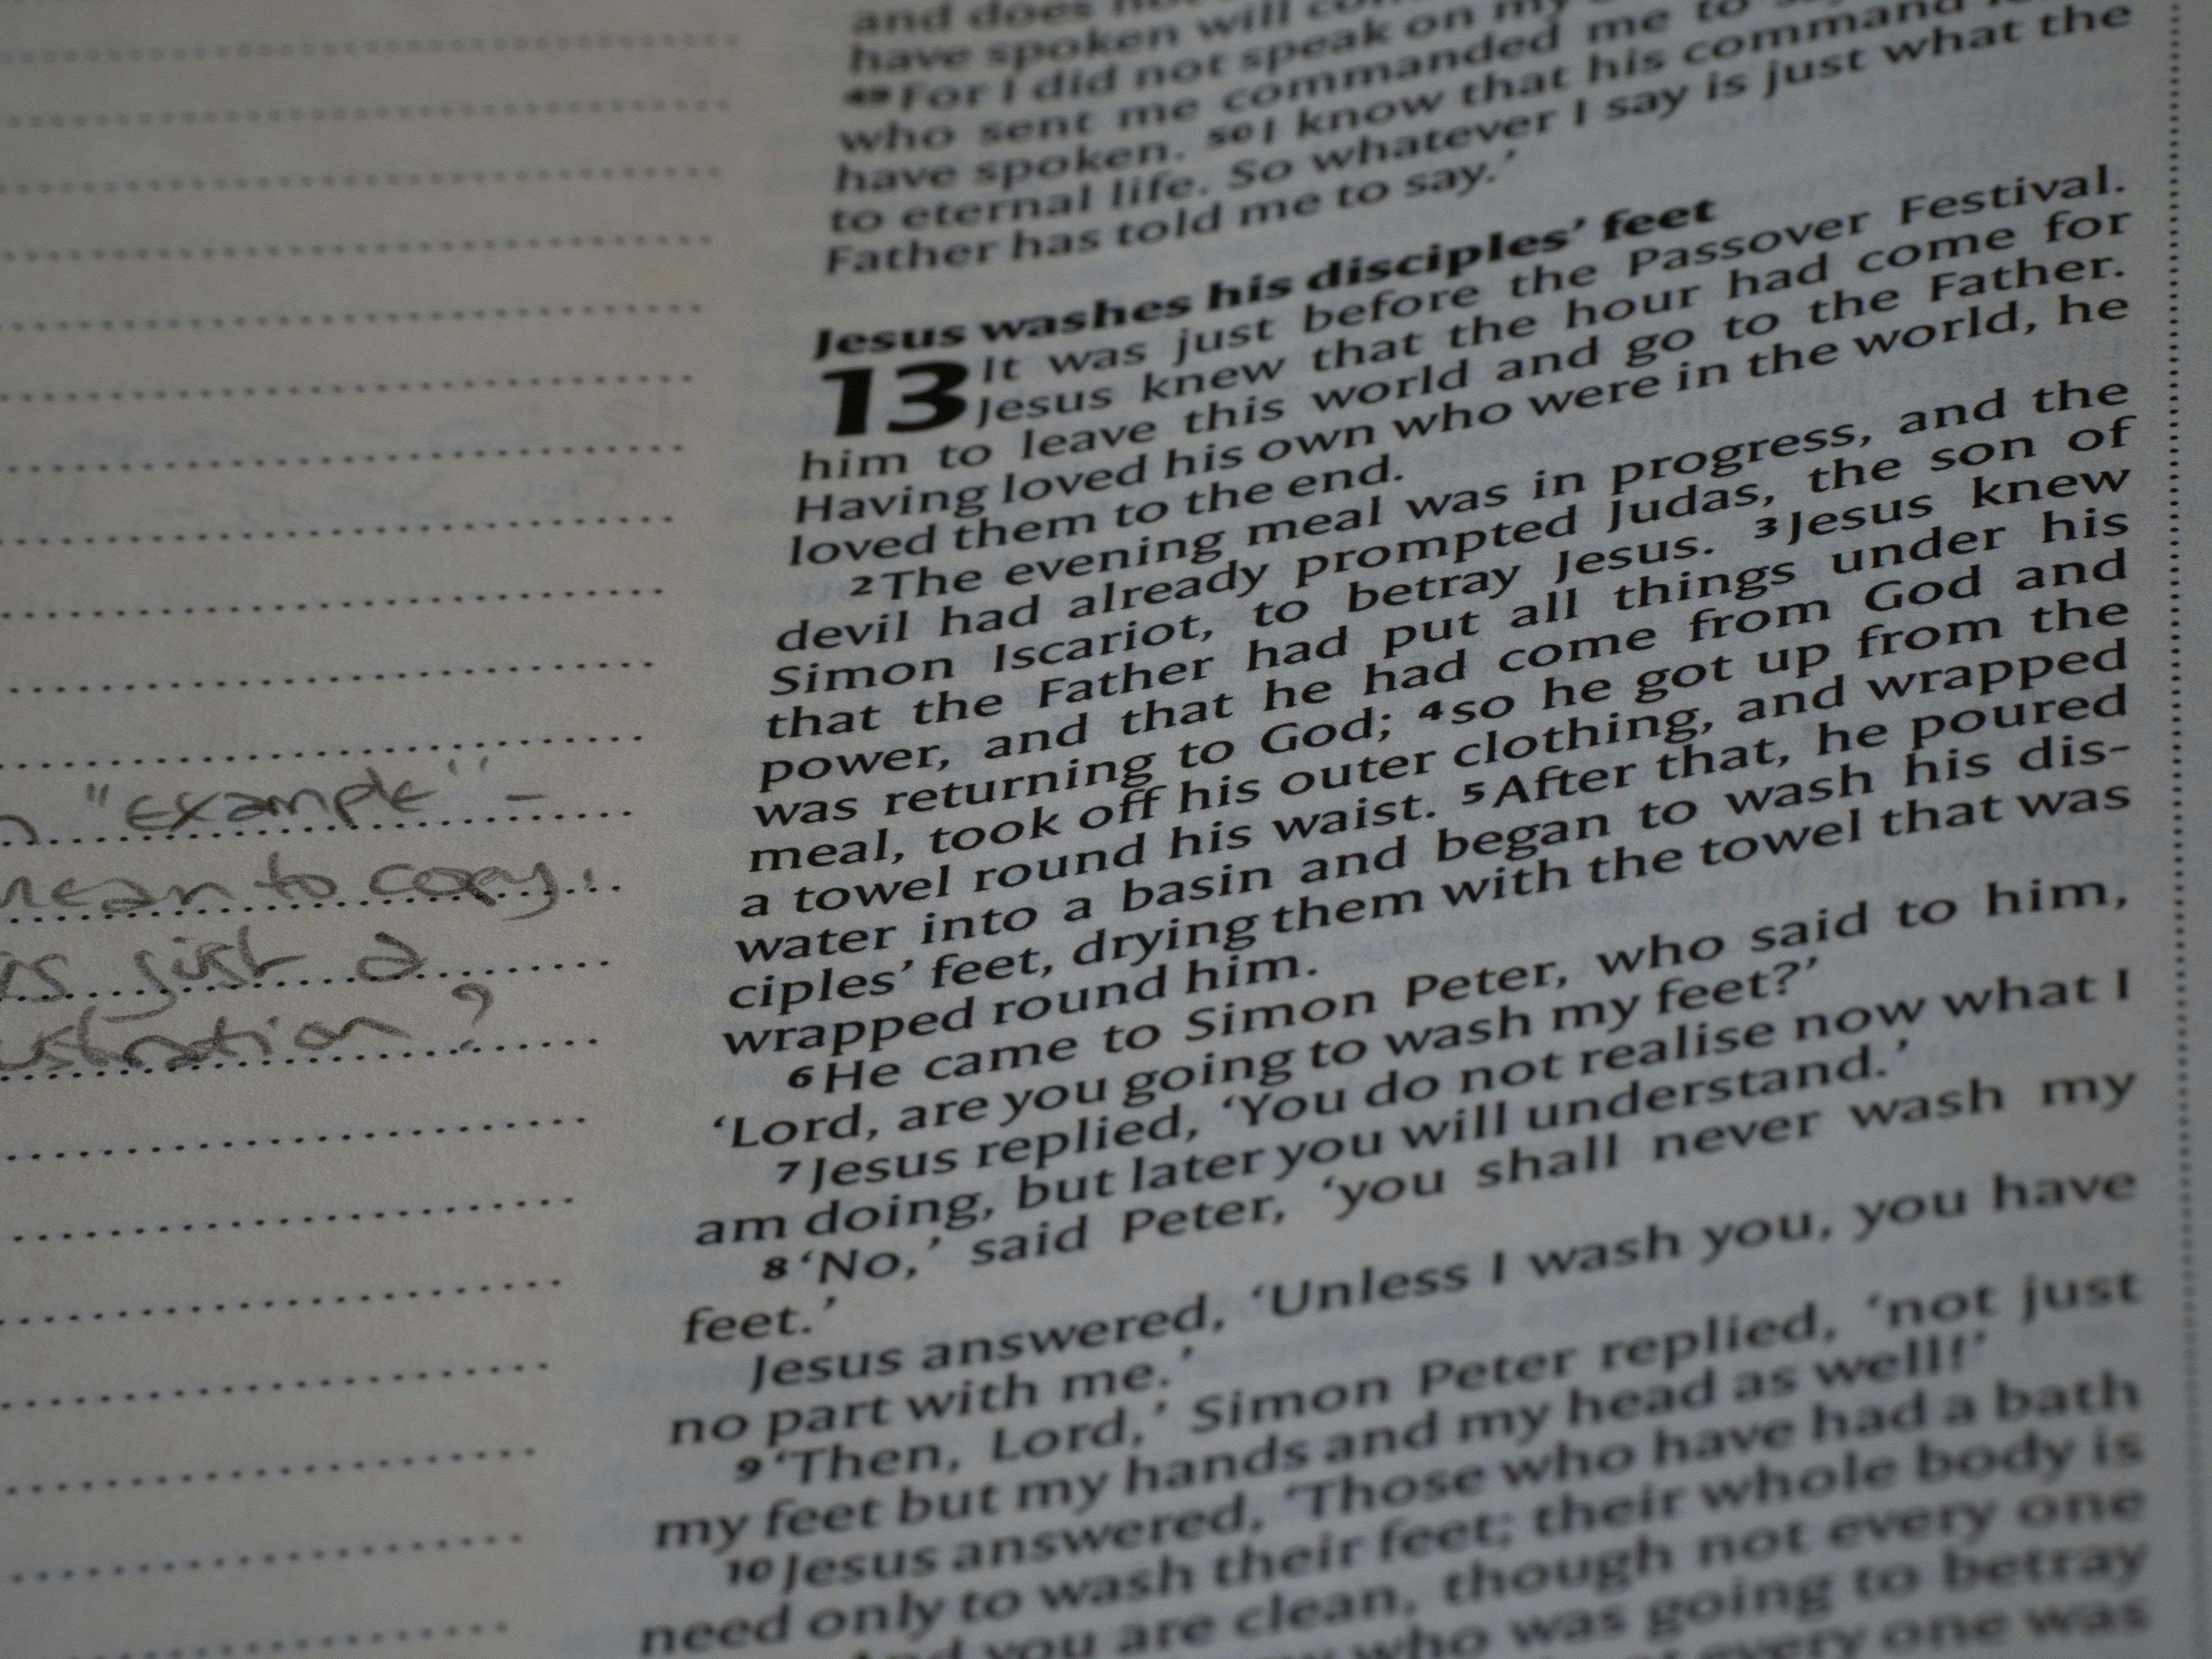 "example" -
mean to copy.
just a
?
and does
have spoken will
49 For I did not speak on my
who sent me commanded me to
have spoken. 50 I know that his command
to eternal life. So whatever I say is just what the
Father has told me to say.’
Jesus washes his disciples’ feet
13 It was just before the Passover Festival.
Jesus knew that the hour had come for
him to leave this world and go to the Father.
Having loved his own who were in the world, he
loved them to the end.
2 The evening meal was in progress, and the
devil had already prompted Judas, the son of
Simon Iscariot, to betray Jesus. 3 Jesus knew
that the Father had put all things under his
power, and that he had come from God and
was returning to God; 4 so he got up from the
meal, took off his outer clothing, and wrapped
a towel round his waist. 5 After that, he poured
water into a basin and began to wash his dis-
ciples’ feet, drying them with the towel that was
wrapped round him.
6 He came to Simon Peter, who said to him,
‘Lord, are you going to wash my feet?’
7 Jesus replied, ‘You do not realise now what I
am doing, but later you will understand.’
8 ‘No,’ said Peter, ‘you shall never wash my
feet.’
Jesus answered, ‘Unless I wash you, you have
no part with me.’
9 ‘Then, Lord,’ Simon Peter replied, ‘not just
my feet but my hands and my head as well!’
10 Jesus answered, ‘Those who have had a bath
need only to wash their feet; their whole body is
And you are clean, though not every one
who was going to betray
every one was